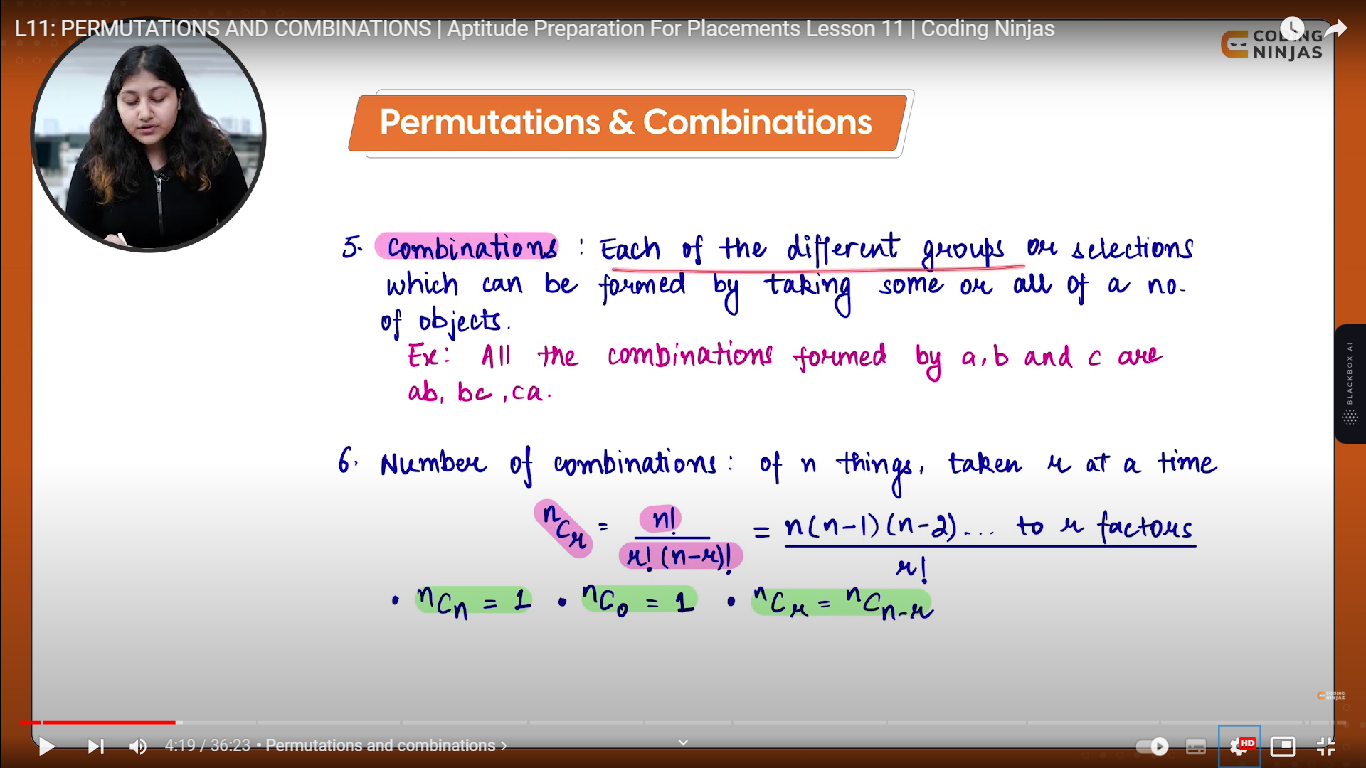 L11: PERMUTATIONS AND COMBINATIONS | Aptitude Preparation For Placements Lesson 11 | Coding Ninjas
CODING
NINJAS
Permutations & Combinations
5. Combinations : Each of the different groups or selections
which can be formed by taking some or all of a no.
of objects.
Ex: All the combinations formed by a, b and c are
ab, bc, ca.
6. Number of combinations: of n things, taken r at a time
ⁿCᵣ = n! / r! (n-r)! = n(n-1)(n-2)... to r factors / r!
• ⁿCₙ = 1 • ⁿC₀ = 1 • ⁿCᵣ = ⁿCₙ₋ᵣ
BLACKBOX AI
CODING
NINJAS
4:19 / 36:23 • Permutations and combinations ›
HD